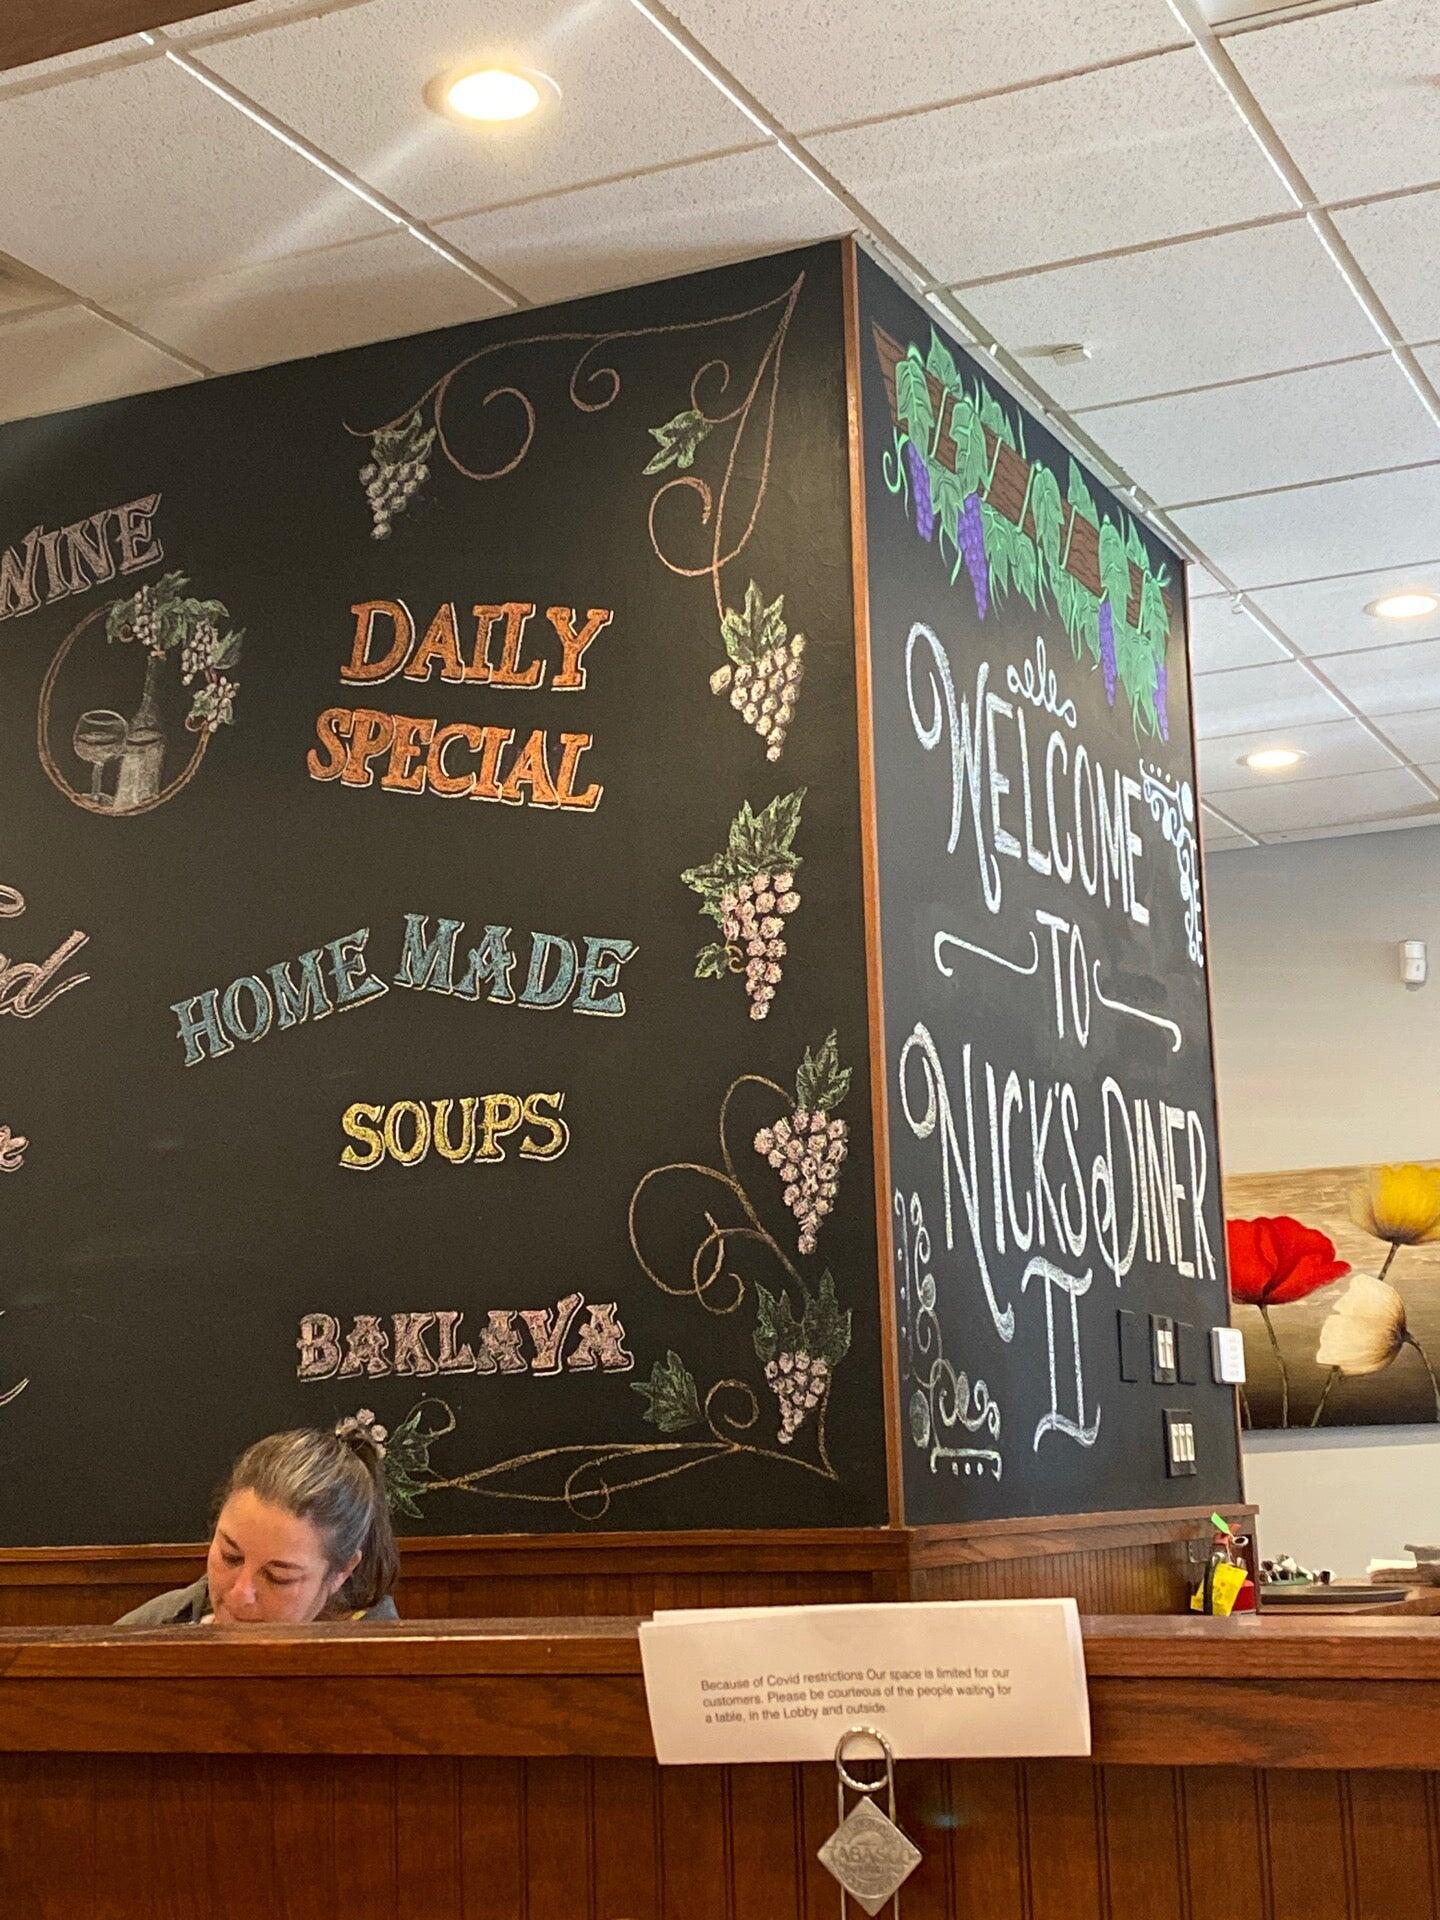 WINE
DAILY
SPECIAL
HOME MADE
SOUPS
BAKLAVA
WELCOME
TO
NICK'S DINER
II
Because of Covid restrictions Our space is limited for our
customers. Please be courteous of the people waiting for
a table, in the Lobby and outside.
TABASCO